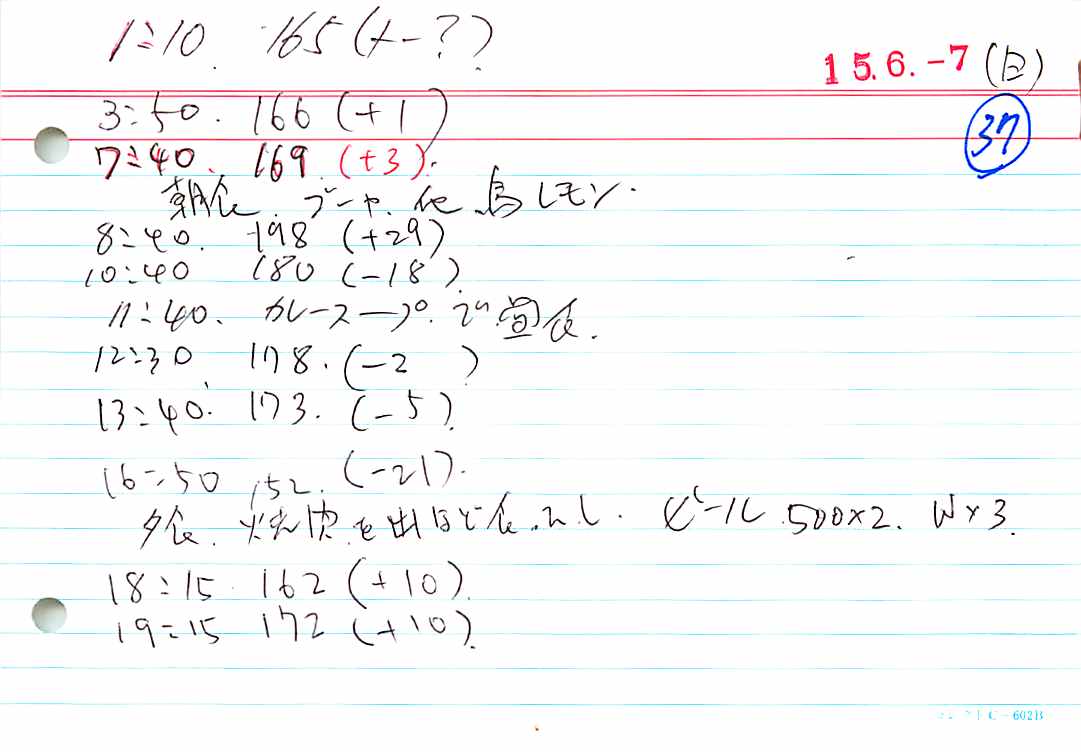 1:10. 165 (+-?)
15.6.-7 (日)
3:50. 166 (+1)
37
7:40. 169 (+3).
朝食. ゴーヤ. 鳥レモン.
8:40. 198 (+29)
10:40 180 (-18).
11:40. カレースープ. で昼食.
12:30 178. (-2 )
13:40. 173. (-5).
16:50 152. (-21).
夕食. を ほど食. ビール 500×2. W×3.
18:15. 162 (+10).
19:15 172 (+10).
C-602B